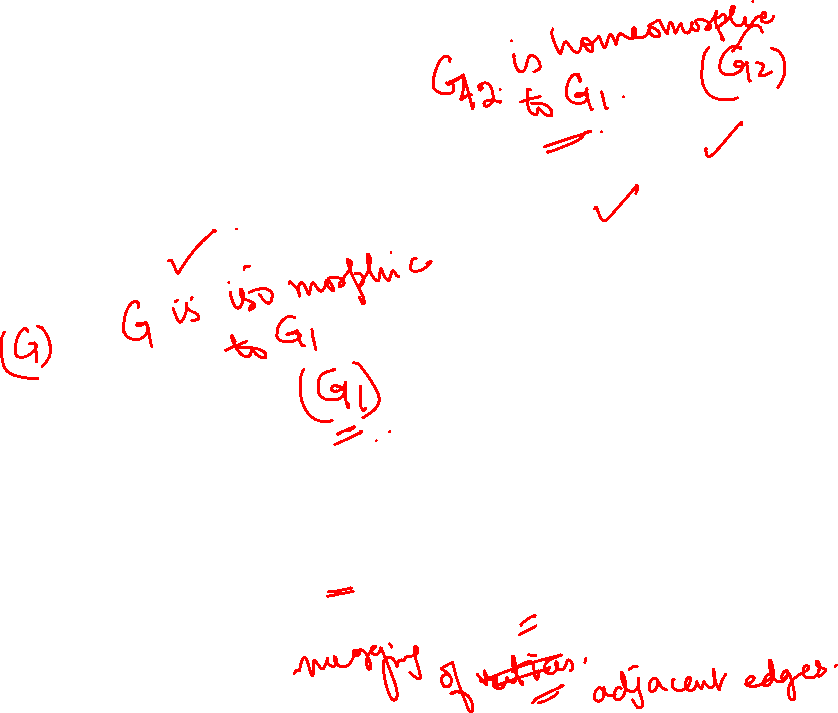 is homeomorphic
G42 to G1.
(G2)
G is iso morphic
to G1
(G)
(G1)
merging of vertices. adjacent edges.